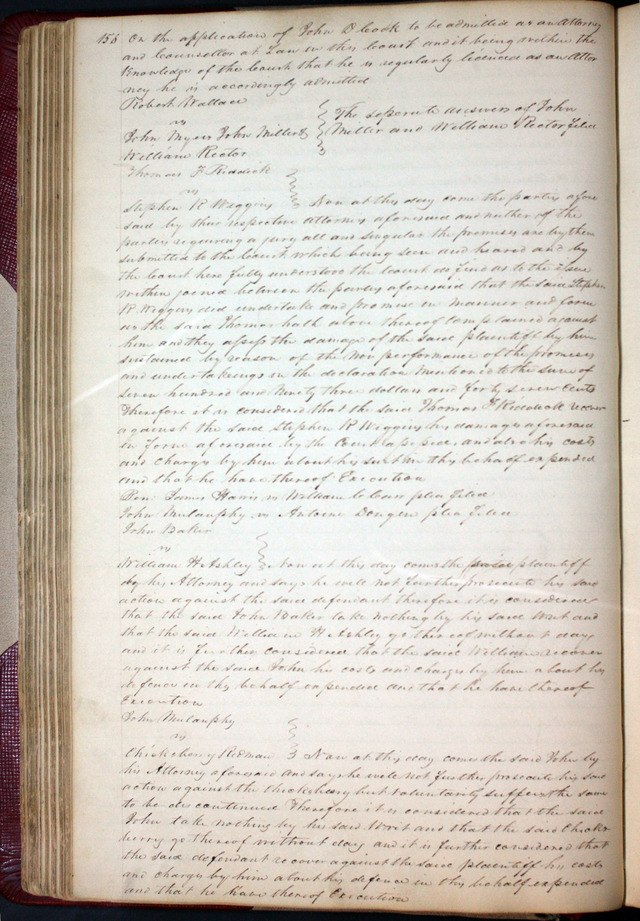 156 On the application of John D Cook to be admitted as an Attorney
and Councellor at Law in this Court and it being within the
Knowledge of the Court that he is regularly licenced as an Attor
ney he is accordingly admitted
Robert Wallace
vs
John Myers John Miller & The seperate answers of John
William Rector Miller and William Rector filed
Thomas F Riddick
vs
Stephen R Wiggins Now at this day come the parties afore
said by their respective attorneys aforesaid and neither of the
parties requiring a jury all and singular the premises are by them
submitted to the Court which being seen and heard and by
the Court here fully understood the Court do find as to the issue
within joined between the parties aforesaid that the said Stephen
R Wiggins did undertake and promise in manner and form
as the said Thomas hath above thereof complained against
him and they assess the damage of the said plaintiff by him
sustained by reason of the non performance of the promises
and undertakings in the declaration mentioned to the sum of
seven hundred and ninety three dollars and forty seven cents
Therefore it is considered that the said Thomas F Riddick recover
against the said Stephen R Wiggins his damages aforesaid
in form aforesaid by the Court assessed, and also his costs
and charges by him about his suit in this behalf expended
and that he have thereof Execution
James Harris vs William plea filed
John Mulanphy vs Antoine Dangen plea filed
John Baker
vs
William H Ashley Now at this day comes the said plaintiff
by his Attorney and says he will not further prosecute his said
action against the said defendant therefore it is considered
that the said John Baker take nothing by his said writ and
that the said William H Ashley go thereof without day,
and it is further considered that the said William recover
against the said John his costs and charges by him about his
defence in this behalf expended and that he have thereof
Execution
John Mulanphy
vs
Chickesberry Redman Now at this day comes the said John by
his Attorney aforesaid and says he will not further prosecute his said
action against the Chickesberry but voluntarily suffers the same
to be discontinued Therefore it is considered that the said
John take nothing by his said Writ and that the said Chickes
berry go thereof without day and it is further considered that
the said defendant recover against the said plaintiff his costs
and charges by him about his defence in this behalf expended
and that he have thereof Execution